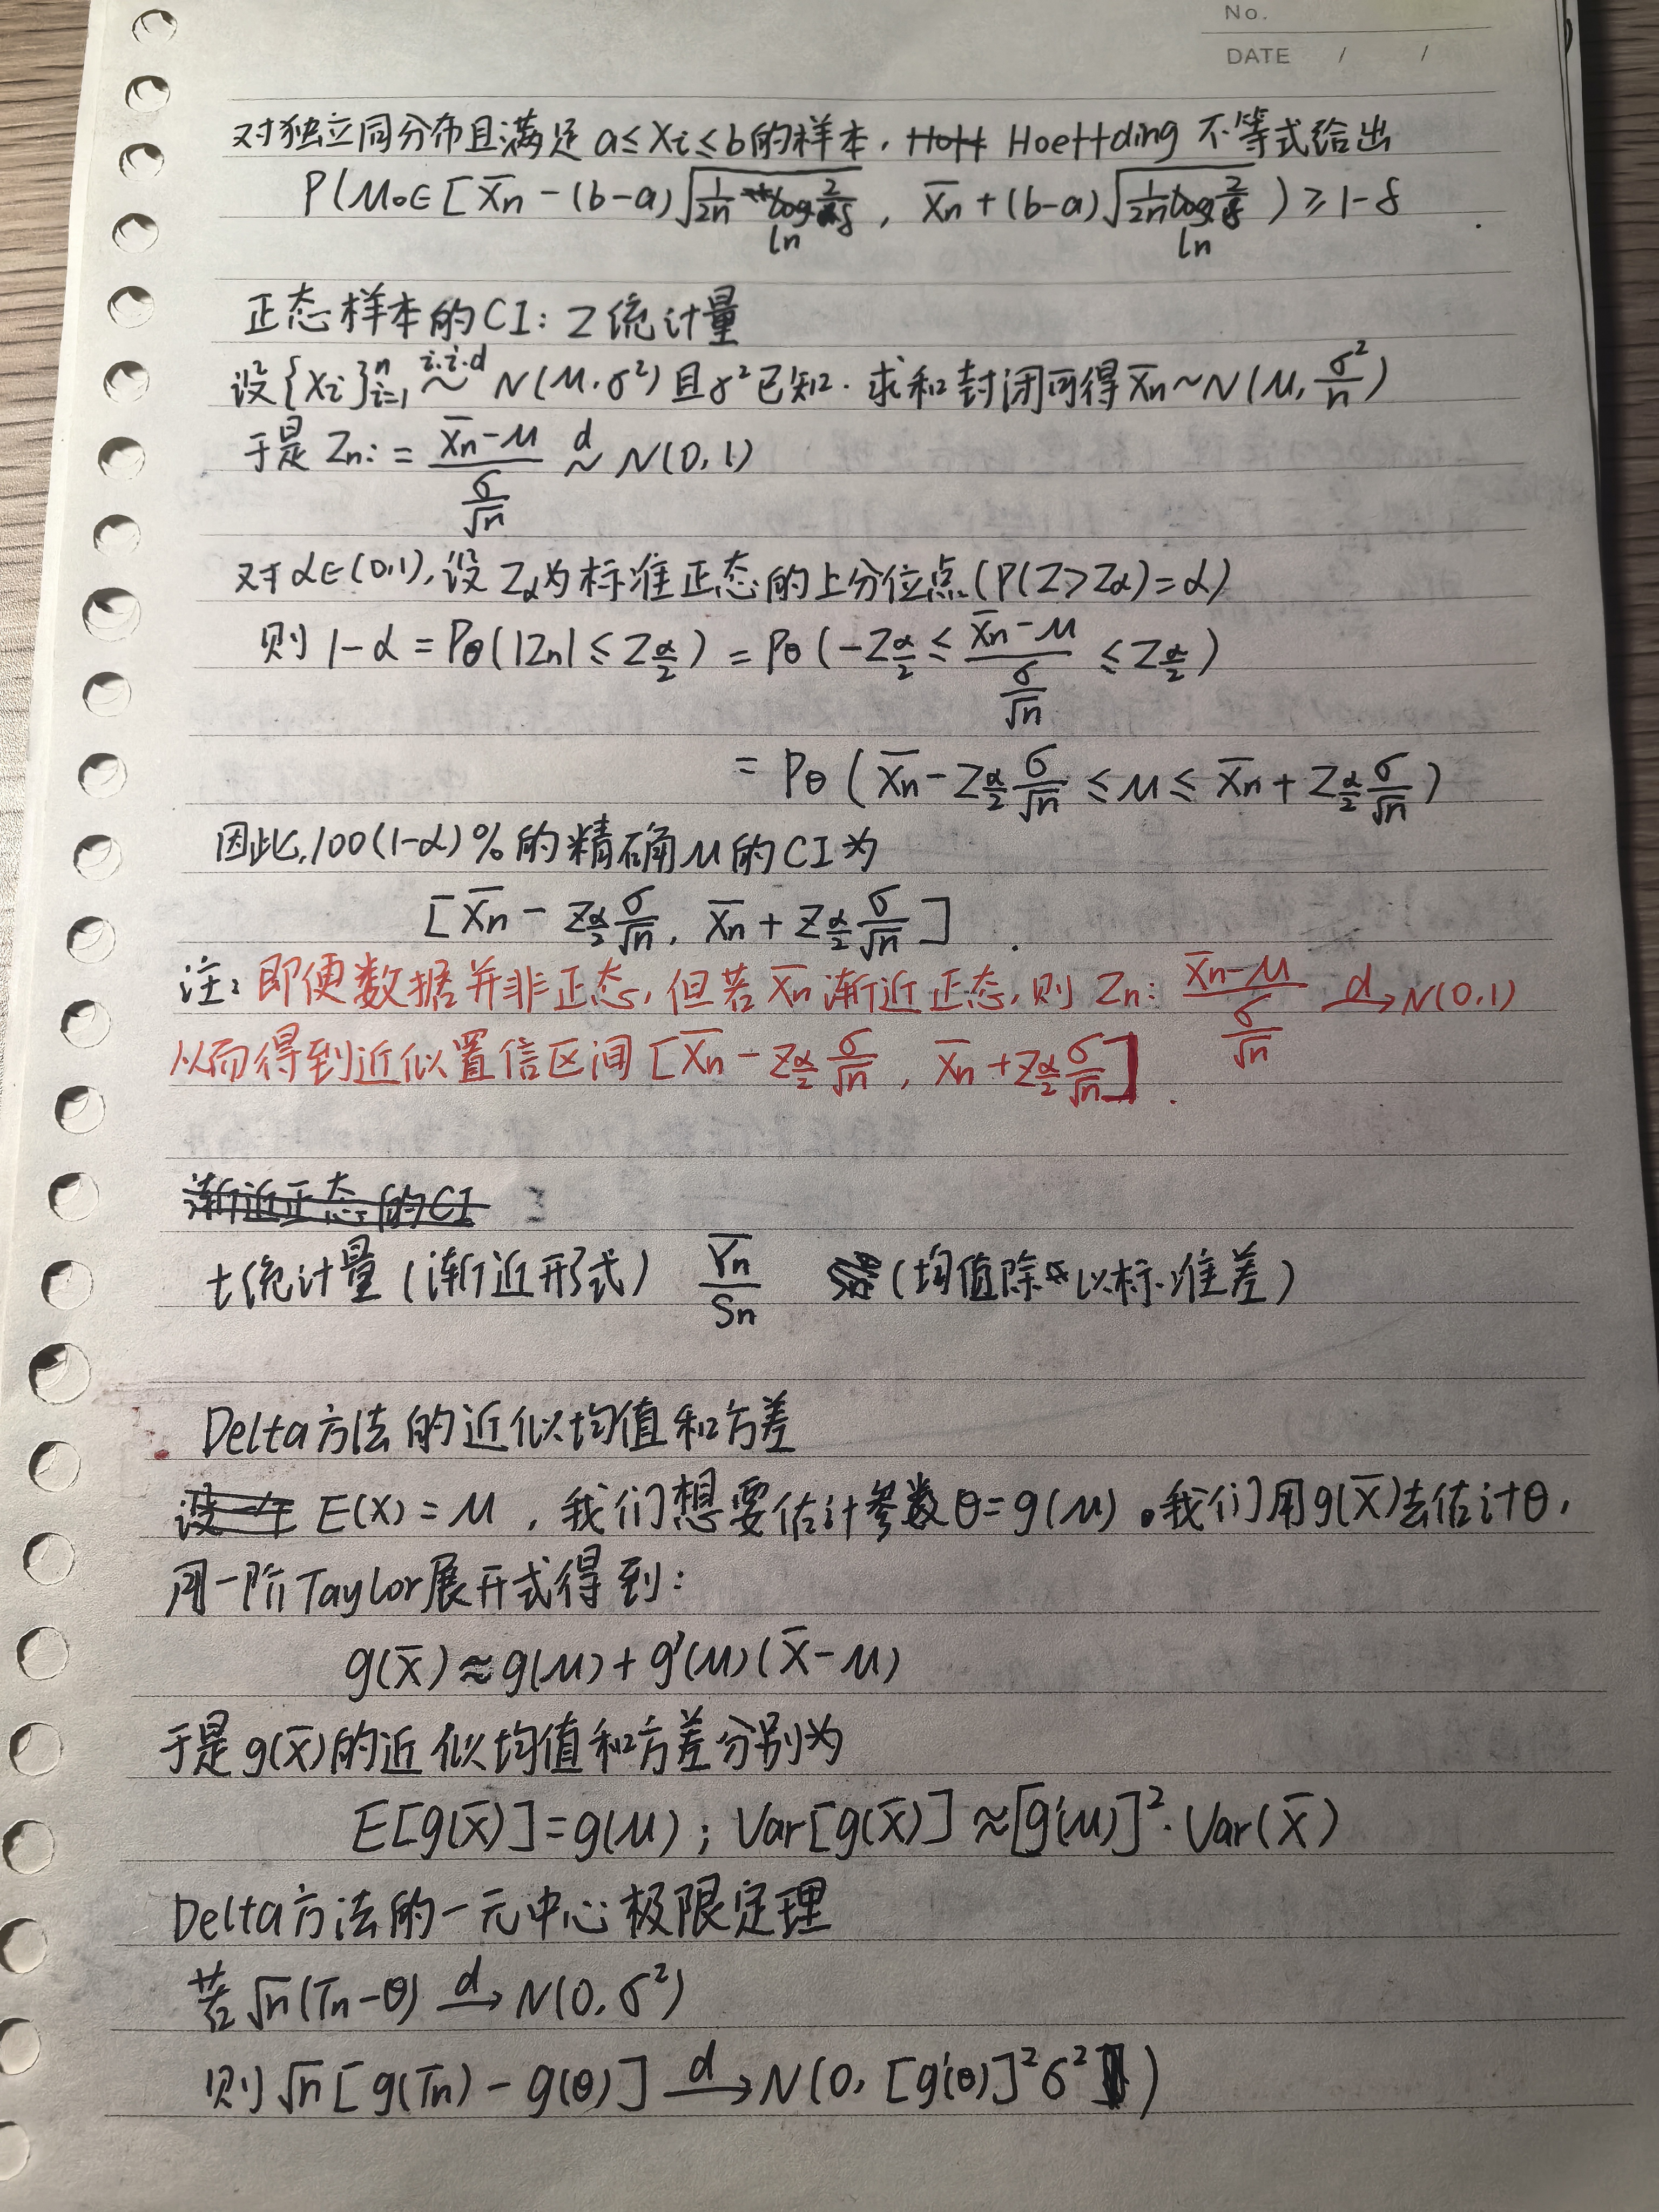 No.
DATE / /
对独立同分布且满足 a≤Xi≤b的样本, Hoeffding 不等式给出
P(μ₀∈[X̄n-(b-a)√(1/2n ln 2/δ), X̄n+(b-a)√(1/2n ln 2/δ)) ≥ 1-δ
正态样本的CI: Z统计量
设{Xi}ⁿᵢ₌₁ i.i.d ~ N(μ,σ²)且σ²已知. 求和封闭可得X̄n~N(μ, σ²/n)
于是 Zn: = (X̄n-μ)/(σ/√n) d~ N(0,1)
对α∈(0,1), 设Zα为标准正态的上分位点(P(Z>Zα)=α)
则 1-α = Pθ(|Zn|≤Z_{α/2}) = Pθ(-Z_{α/2} ≤ (X̄n-μ)/(σ/√n) ≤ Z_{α/2})
= Pθ(X̄n-Z_{α/2} σ/√n ≤ μ ≤ X̄n+Z_{α/2} σ/√n)
因此,100(1-α)%的精确μ的CI为
[X̄n - Z_{α/2} σ/√n, X̄n + Z_{α/2} σ/√n].
注: 即便数据并非正态, 但若X̄n渐近正态, 则 Zn: (X̄n-μ)/(σ/√n) d→ N(0,1)
从而得到近似置信区间[X̄n - Z_{α/2} σ/√n, X̄n + Z_{α/2} σ/√n].
渐近正态的CI
t统计量(渐近形式) Ȳn/Sn (均值除以标准差)
Delta方法的近似均值和方差
E(X)=μ, 我们想要估计参数θ=g(μ)。我们用g(X̄)去估计θ,
用一阶Taylor展开式得到:
g(X̄)≈g(μ)+g'(μ)(X̄-μ)
于是g(X̄)的近似均值和方差分别为
E[g(X̄)]=g(μ); Var[g(X̄)]≈[g'(μ)]²·Var(X̄)
Delta方法的一元中心极限定理
若√n(Tn-θ) d→ N(0,σ²)
则√n[g(Tn)-g(θ)] d→ N(0, [g'(θ)]²σ²)